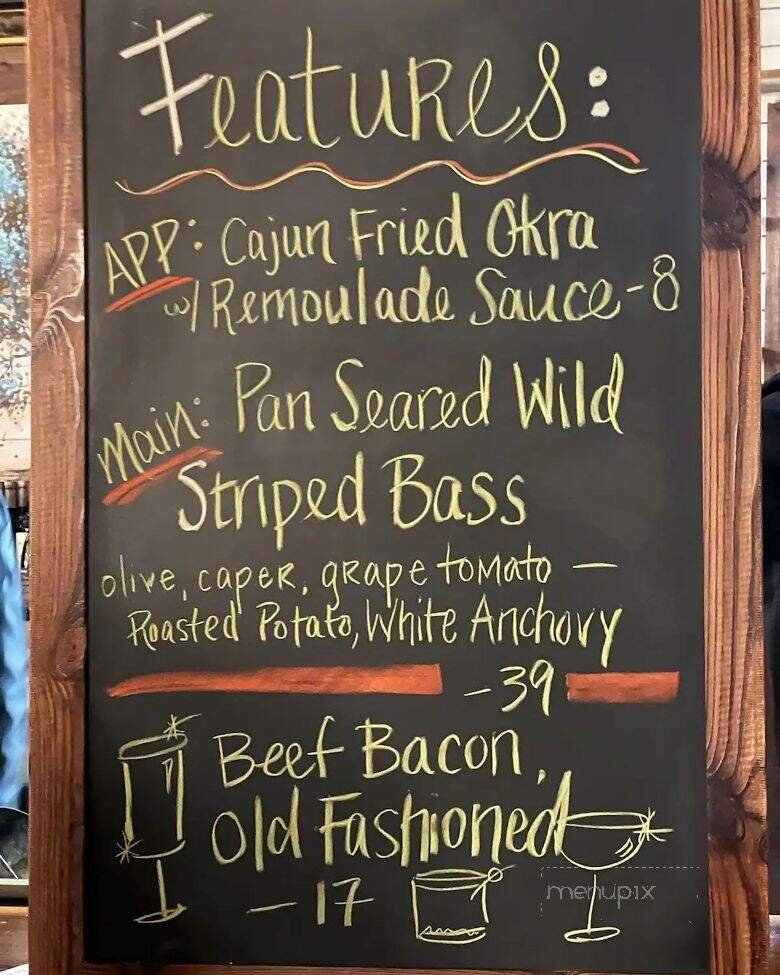 Features:
APP: Cajun Fried Okra
w/ Remoulade Sauce - 8
Main: Pan Seared Wild
Striped Bass
olive, caper, grape tomato —
Roasted Potato, White Anchovy
- 39
Beef Bacon,
Old Fashioned
- 17
menupix